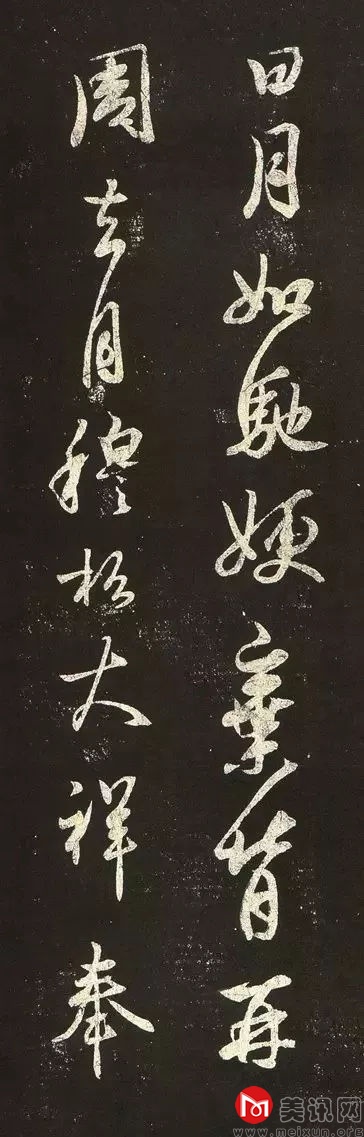 日月如馳嫂棄背再
周去月穆松大祥奉
美讯网
www.meixun.org